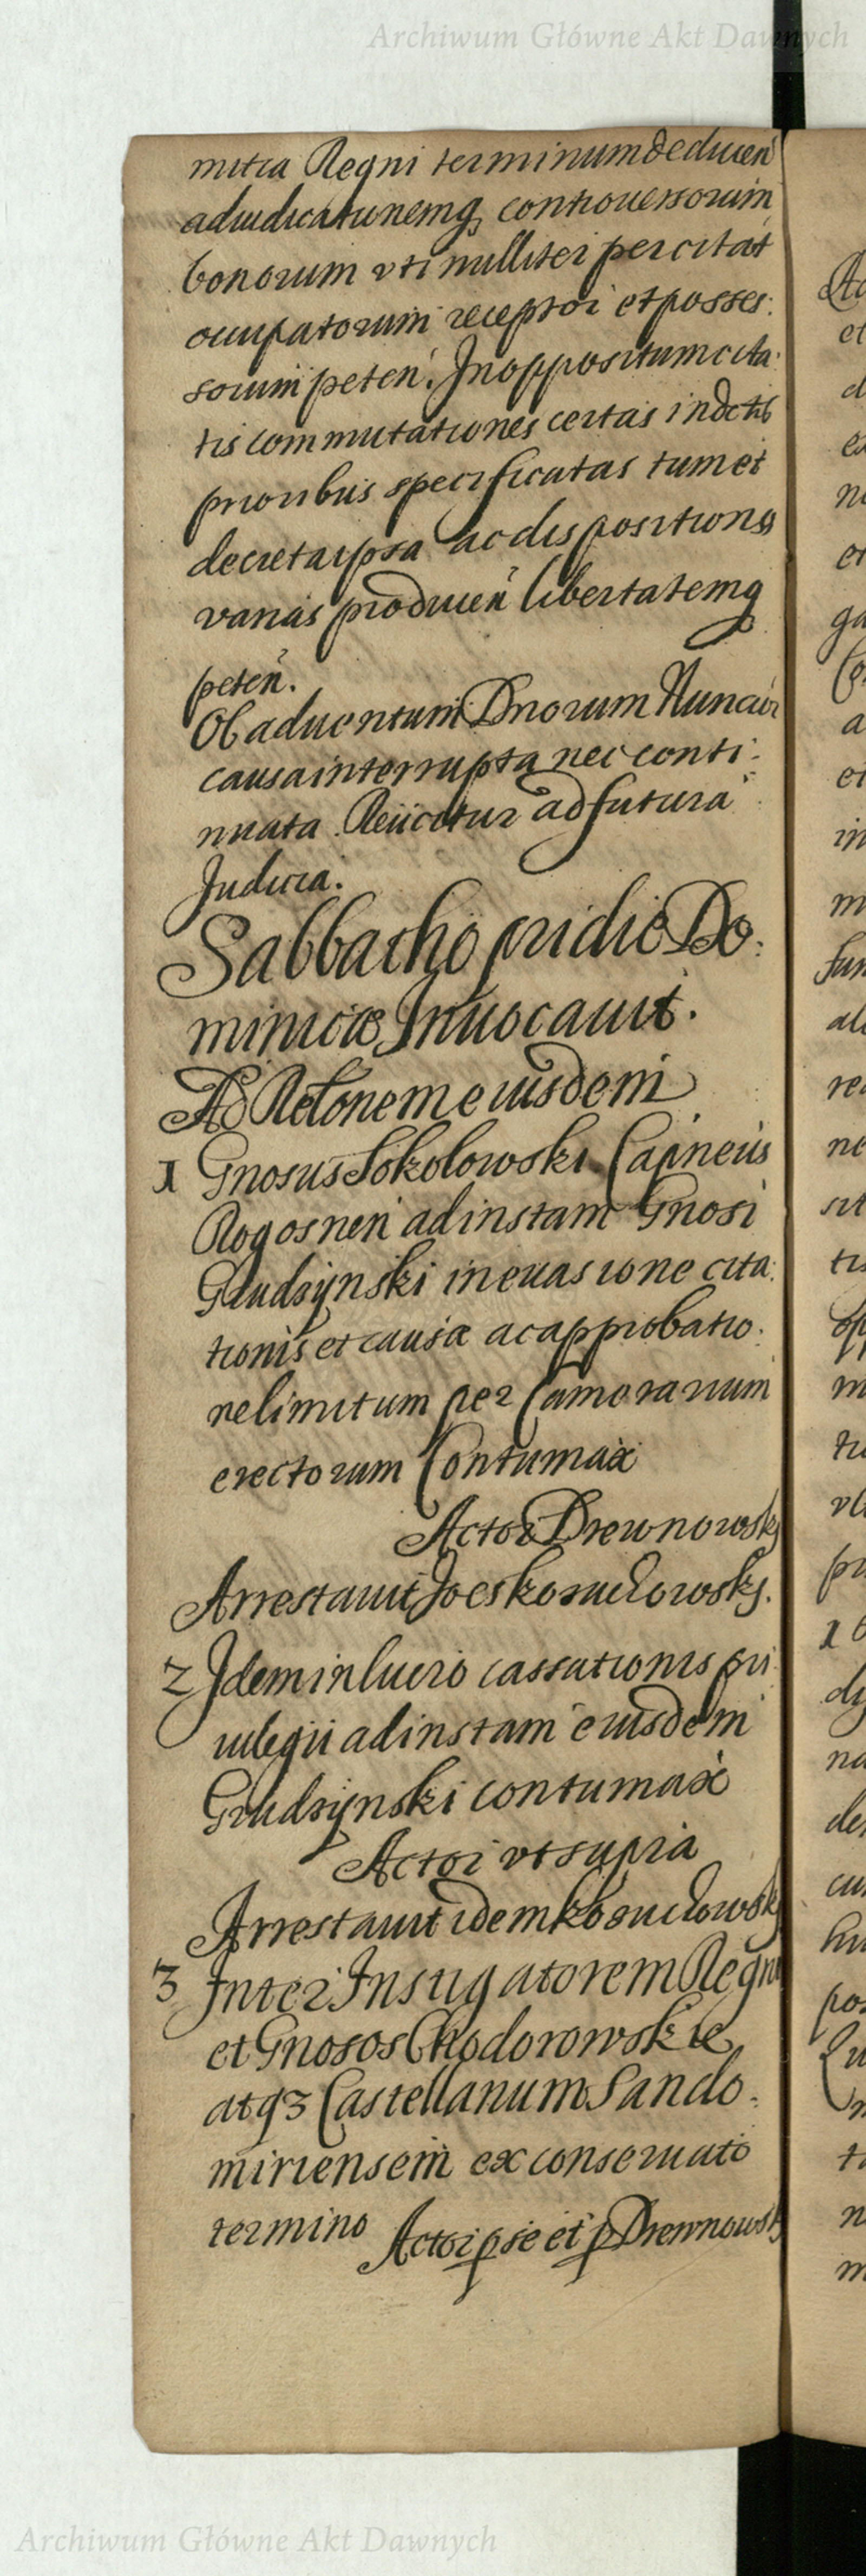 Archiwum Główne Akt Dawnych
mitia Regni terminum deducen
adiudicationemq controuersorum
bonorum vti nulliter per citat
occupatorum receptor et posses:
sorum peten. In oppositum cita:
tis commutationes certas in dctis
prioribus specificatas tum et
decreta ipsa ac dispositiones
varias producen libertatemq
peten.
Ob aduentum Dnorum Nuncior
causa interrupta nec conti:
nuata. Reiicitur ad futura
Judicia.
Sabbatho pridie Do:
minicæ Inuocauit.
Ad Relonem eiusdem
1 Gnosus Sokolowski Capneus
Rogosnen ad instam Gnosi
Grudzynski in euasione cita:
tionis et causæ ac approbatio:
ne limitum per Camerarium
erectorum Contumax
Actor Drewnowsky
Arrestauit Joes Kosuchowsky.
2 Idem in lucro cassationis pri
uilegii ad instam eiusdem
Grudzynski contumax
Actor vt supra
Arrestauit idem Kosuchowsky
3 Inter Instigatorem Regni
et Gnosos Chodorowskie
atq3 Castellanum Sando:
miriensem ex conseruato
termino Actor p se et p Drewnowsky
Archiwum Główne Akt Dawnych